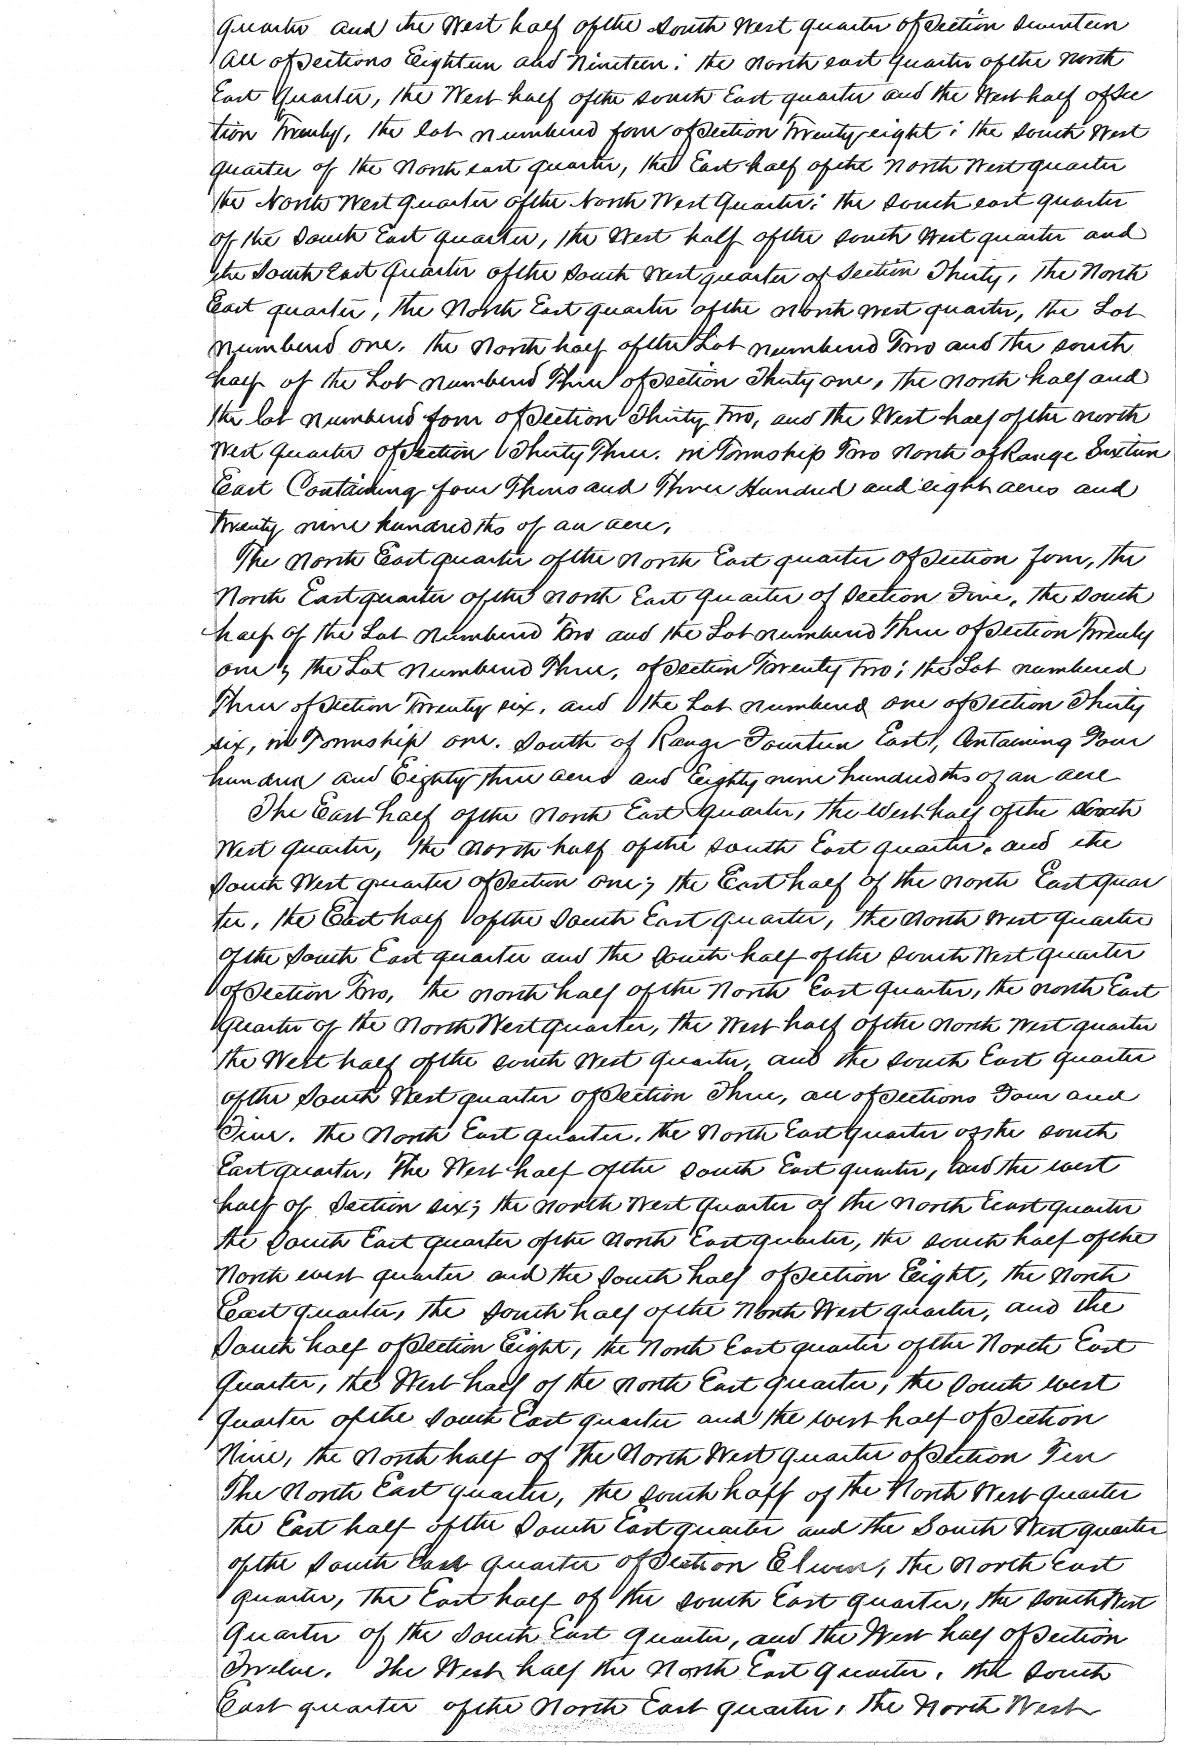 quarter and the West half of the South West quarter of Section Seventeen
All of Sections Eighteen and Nineteen: the North east quarter of the North
East Quarter, the West half of the South East quarter and the West half of Sec
tion Twenty, the lot numbered four of Section Twenty eight; the South West
quarter of the North east quarter, the East half of the North West quarter
the North West Quarter of the North West Quarter: the South east quarter
of the South East quarter, the West half of the South West quarter and
the South East Quarter of the South West quarter of Section Thirty, the North
East quarter, the North East quarter of the North West quarter, the Lot
numbered one, the North half of the Lot numbered Two and the South
half of the Lot numbered Three of Section Thirty one, the North half and
the lot numbered four of Section Thirty Two, and the West half of the North
West Quarter of Section Thirty Three. in Township Two North of Range Sixteen
East Containing four Thousand Three Hundred and eight acres and
Twenty nine hundredths of an acre,
The North East quarter of the North East quarter of Section four, the
North East quarter of the North East Quarter of Section Five, the South
half of the Lot numbered Two and the Lot numbered Three of Section Twenty
one; the Lot Numbered Three, of Section Twenty Two; the Lot numbered
Three of Section Twenty six, and the Lot numbered one of Section Thirty
six, in Township one. South of Range Fourteen East, Containing Four
hundred and Eighty three acres and Eighty nine hundredths of an acre
The East half of the North East Quarter, the West half of the North
West quarter, the North half of the South East quarter, and the
South West quarter of Section one; the East half of the North East quar
ter, the East half of the South East Quarter, the North West quarter
of the South East quarter and the South half of the South West quarter
of Section Two, the North half of the North East quarter, the North East
Quarter of the North West quarter, the West half of the North West quarter
the West half of the South West quarter, and the South East quarter
of the South West quarter of Section Three, all of Sections Four and
Five. the North East quarter, the North East Quarter of the South
East quarter, the West half of the South East quarter, and the west
half of Section six; the North West Quarter of the North East quarter
the South East quarter of the North East quarter, the South half of the
North west quarter and the South half of Section Eight, the North
East quarter, the South half of the North West quarter, and the
South half of Section Eight, the North East quarter of the North East
Quarter, the West half of the North East quarter, the South west
quarter of the South East quarter and the west half of Section
Nine, the North half of the North West quarter of Section Ten
The North East quarter, the South half of the North West quarter
the East half of the South East quarter and the South West quarter
of the South East quarter of Section Eleven, the North East
quarter, the East half of the South East quarter, the South West
Quarter of the South East quarter, and the West half of Section
Twelve. The West half the North East Quarter, the South
East quarter of the North East quarter, the North West